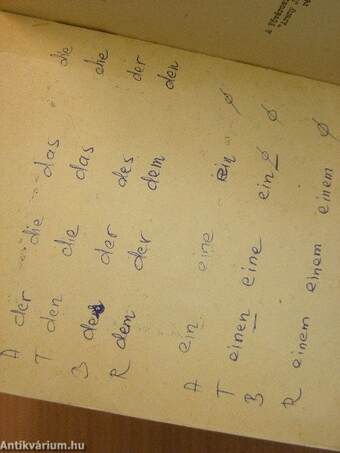 A der die das die
T den die das die
B der des der
R dem der dem den
A ein eine ein ∅
T einen eine ein ∅ ∅
B
R einem einem einem ∅
Antikvárium.hu